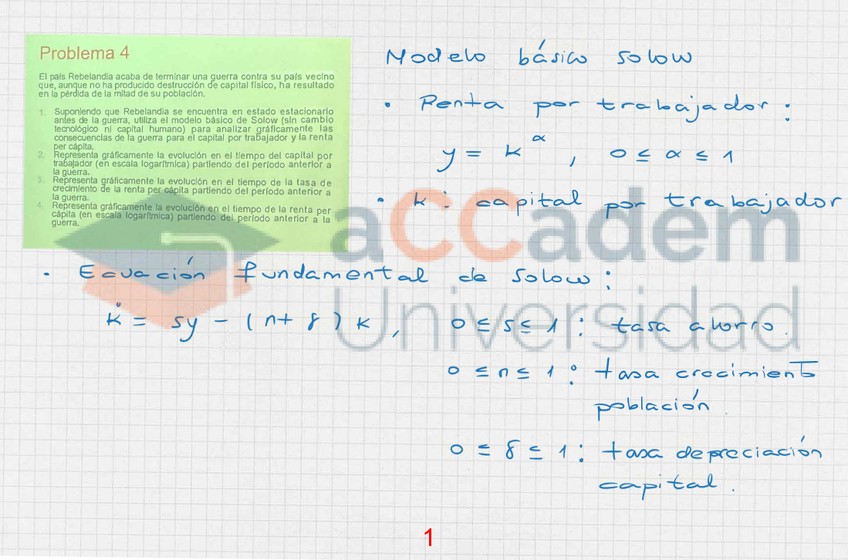 Problema 4
El país Rebelandia acaba de terminar una guerra contra su país vecino
que, aunque no ha producido destrucción de capital físico, ha resultado
en la pérdida de la mitad de su población.
1. Suponiendo que Rebelandia se encuentra en estado estacionario
antes de la guerra, utiliza el modelo básico de Solow (sin cambio
tecnológico ni capital humano) para analizar gráficamente las
consecuencias de la guerra para el capital por trabajador y la renta
per cápita.
2. Representa gráficamente la evolución en el tiempo del capital por
trabajador (en escala logarítmica) partiendo del período anterior a
la guerra.
3. Representa gráficamente la evolución en el tiempo de la tasa de
crecimiento de la renta per cápita partiendo del período anterior a
la guerra.
4. Representa gráficamente la evolución en el tiempo de la renta per
cápita (en escala logarítmica) partiendo del período anterior a la
guerra.
Modelo básico Solow
• Renta por trabajador:
y = k^α, 0 ≤ α ≤ 1
• k: capital por trabajador
• Ecuación fundamental de Solow:
k̇ = sy - (n+δ)k, 0 ≤ s ≤ 1: tasa ahorro.
0 ≤ n ≤ 1: tasa crecimiento
población
0 ≤ δ ≤ 1: tasa depreciación
capital.
aCCadem
Universidad
1